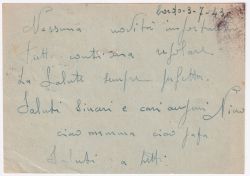 Bordo-3-7-43
Nessuna novità importante
tutto continua regolare.
La salute sempre perfetta.
Saluti sinceri e cari auguri Nino
ciao mamma ciao papà
Saluti a tutti